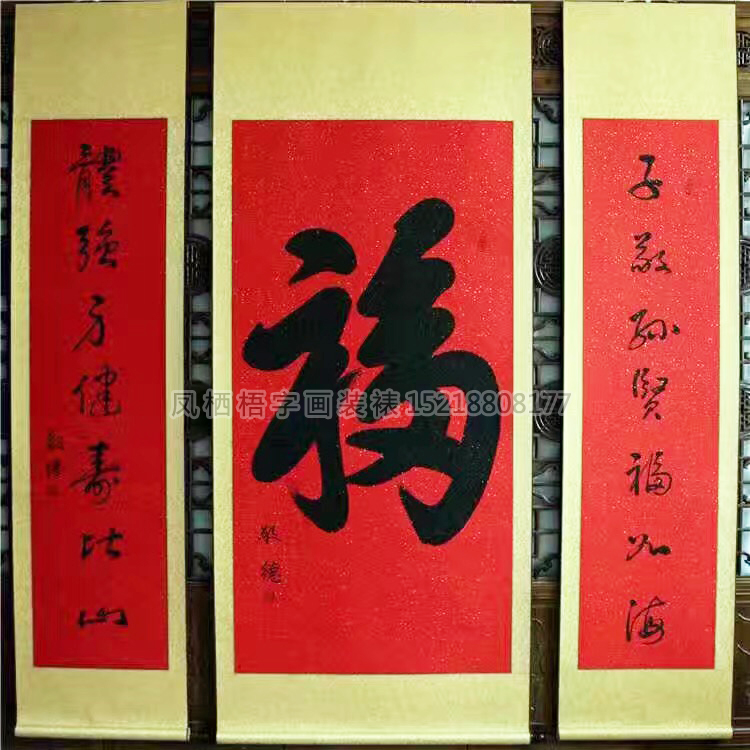 子敬孫賢福如海
福
敬德
體強身健壽比山
敬德
凤栖梧字画装裱15218808177